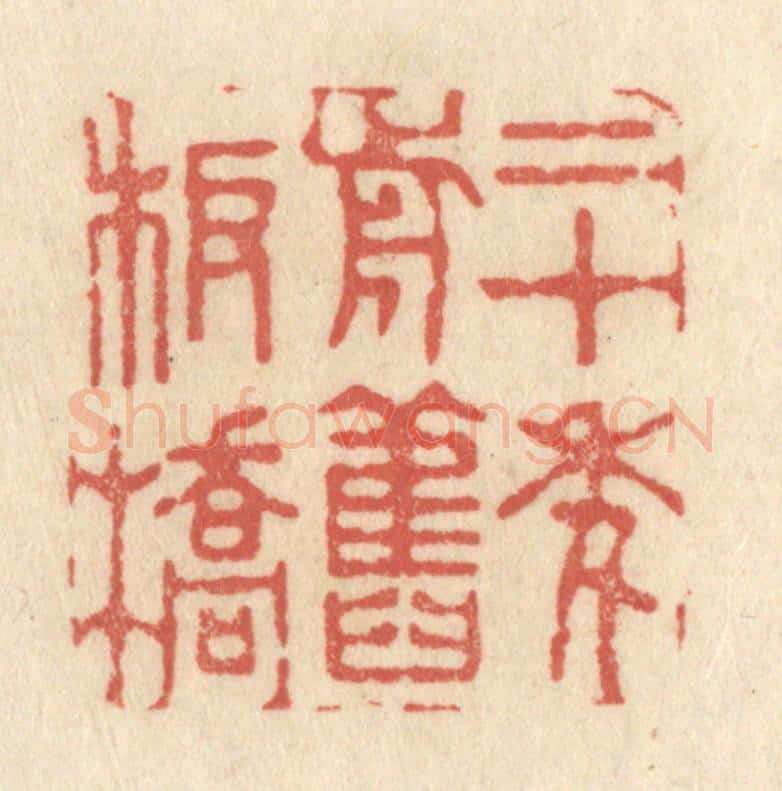 二十年
前舊
板橋
Shufawang.CN